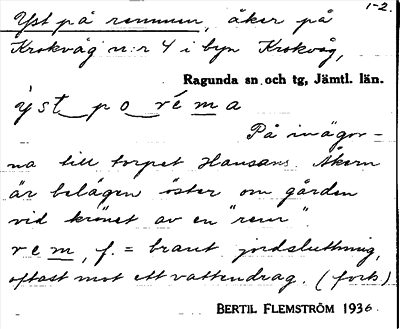 1-2.
Yst på remmen, åker på
Krokvåg n:r 4 i byn Krokvåg,
Ragunda sn och tg, Jämtl. län.
ỳst po réma
På inägor-
na till torpet Hansans. Åkern
är belägen öster om gården
vid krönet av en "rem".
rem, f. = brant jordsluttning,
oftast mot ett vattendrag. (forts)
BERTIL FLEMSTRÖM 1936.